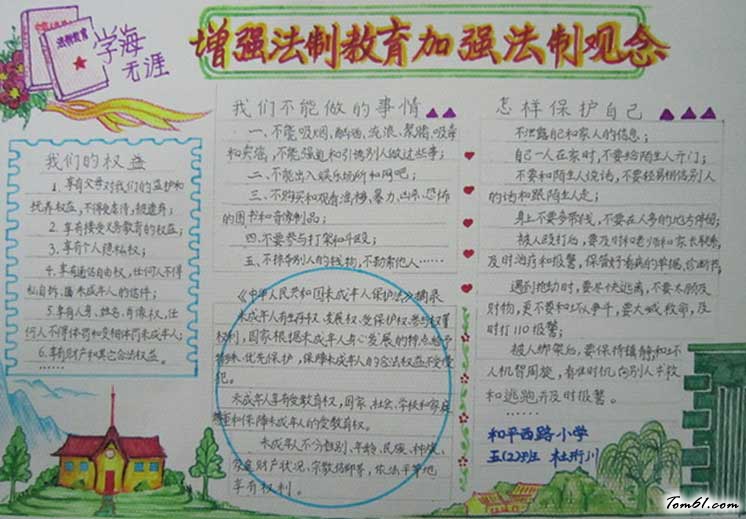 增强法制教育加强法制观念
法律教育
学海
无涯
我们的权益
1、享有父母对我们的监护和
抚养权益,不得虐待,被遗弃;
2、享有接受义务教育的权益;
3、享有个人隐私权;
4、享有通信自由权,任何人不得
私自拆、看未成年人的信件;
5、享有人身、姓名、肖像权,任
何人不得体罚和变相体罚未成年人;
6、享有财产和其它合法权益。
……
我们不能做的事情
一、不能吸烟、酗酒、流浪、聚赌、吸毒
和卖淫,不能强迫和引诱别人做这些事;
二、不能出入娱乐场所和网吧;
三、不购买和观看淫秽、暴力、凶杀、恐怖
的图书和音像制品;
四、不要参与打架和斗殴;
五、不拿别人的钱物,不勒索他人……
《中华人民共和国未成年人保护法》摘录
未成年人有生存权、发展权、受保护权、参与权等
权利,国家根据未成年人身心发展的特点给予
特殊、优先保护,保障未成年人的合法权益不受侵
犯。
未成年人享有受教育权,国家、社会、学校和家庭
尊重和保障未成年人的受教育权。
未成年人不分性别、年龄、民族、种族、
家庭财产状况、宗教信仰等,依法平等地
享有权利。
怎样保护自己
不泄露自己和家人的信息;
自己一人在家时,不要给陌生人开门;
不要和陌生人说话,不要轻易相信别人
的话和跟陌生人走;
身上不要多带钱,不要在人多的地方停留;
被人殴打后,要及时和老师和家长联系,
及时治疗和报警,保管好看病的单据、诊断书;
遇到抢劫时,要尽快逃离,不要太顾及
财物,更不要和坏人争斗,要大喊救命,及
时打110报警;
被人绑架后,要保持镇静,和坏
人机智周旋,有准时机向别人求救
和逃跑并及时报警。
……
和平西路小学
五(2)班 杜珩川
Tom61.com